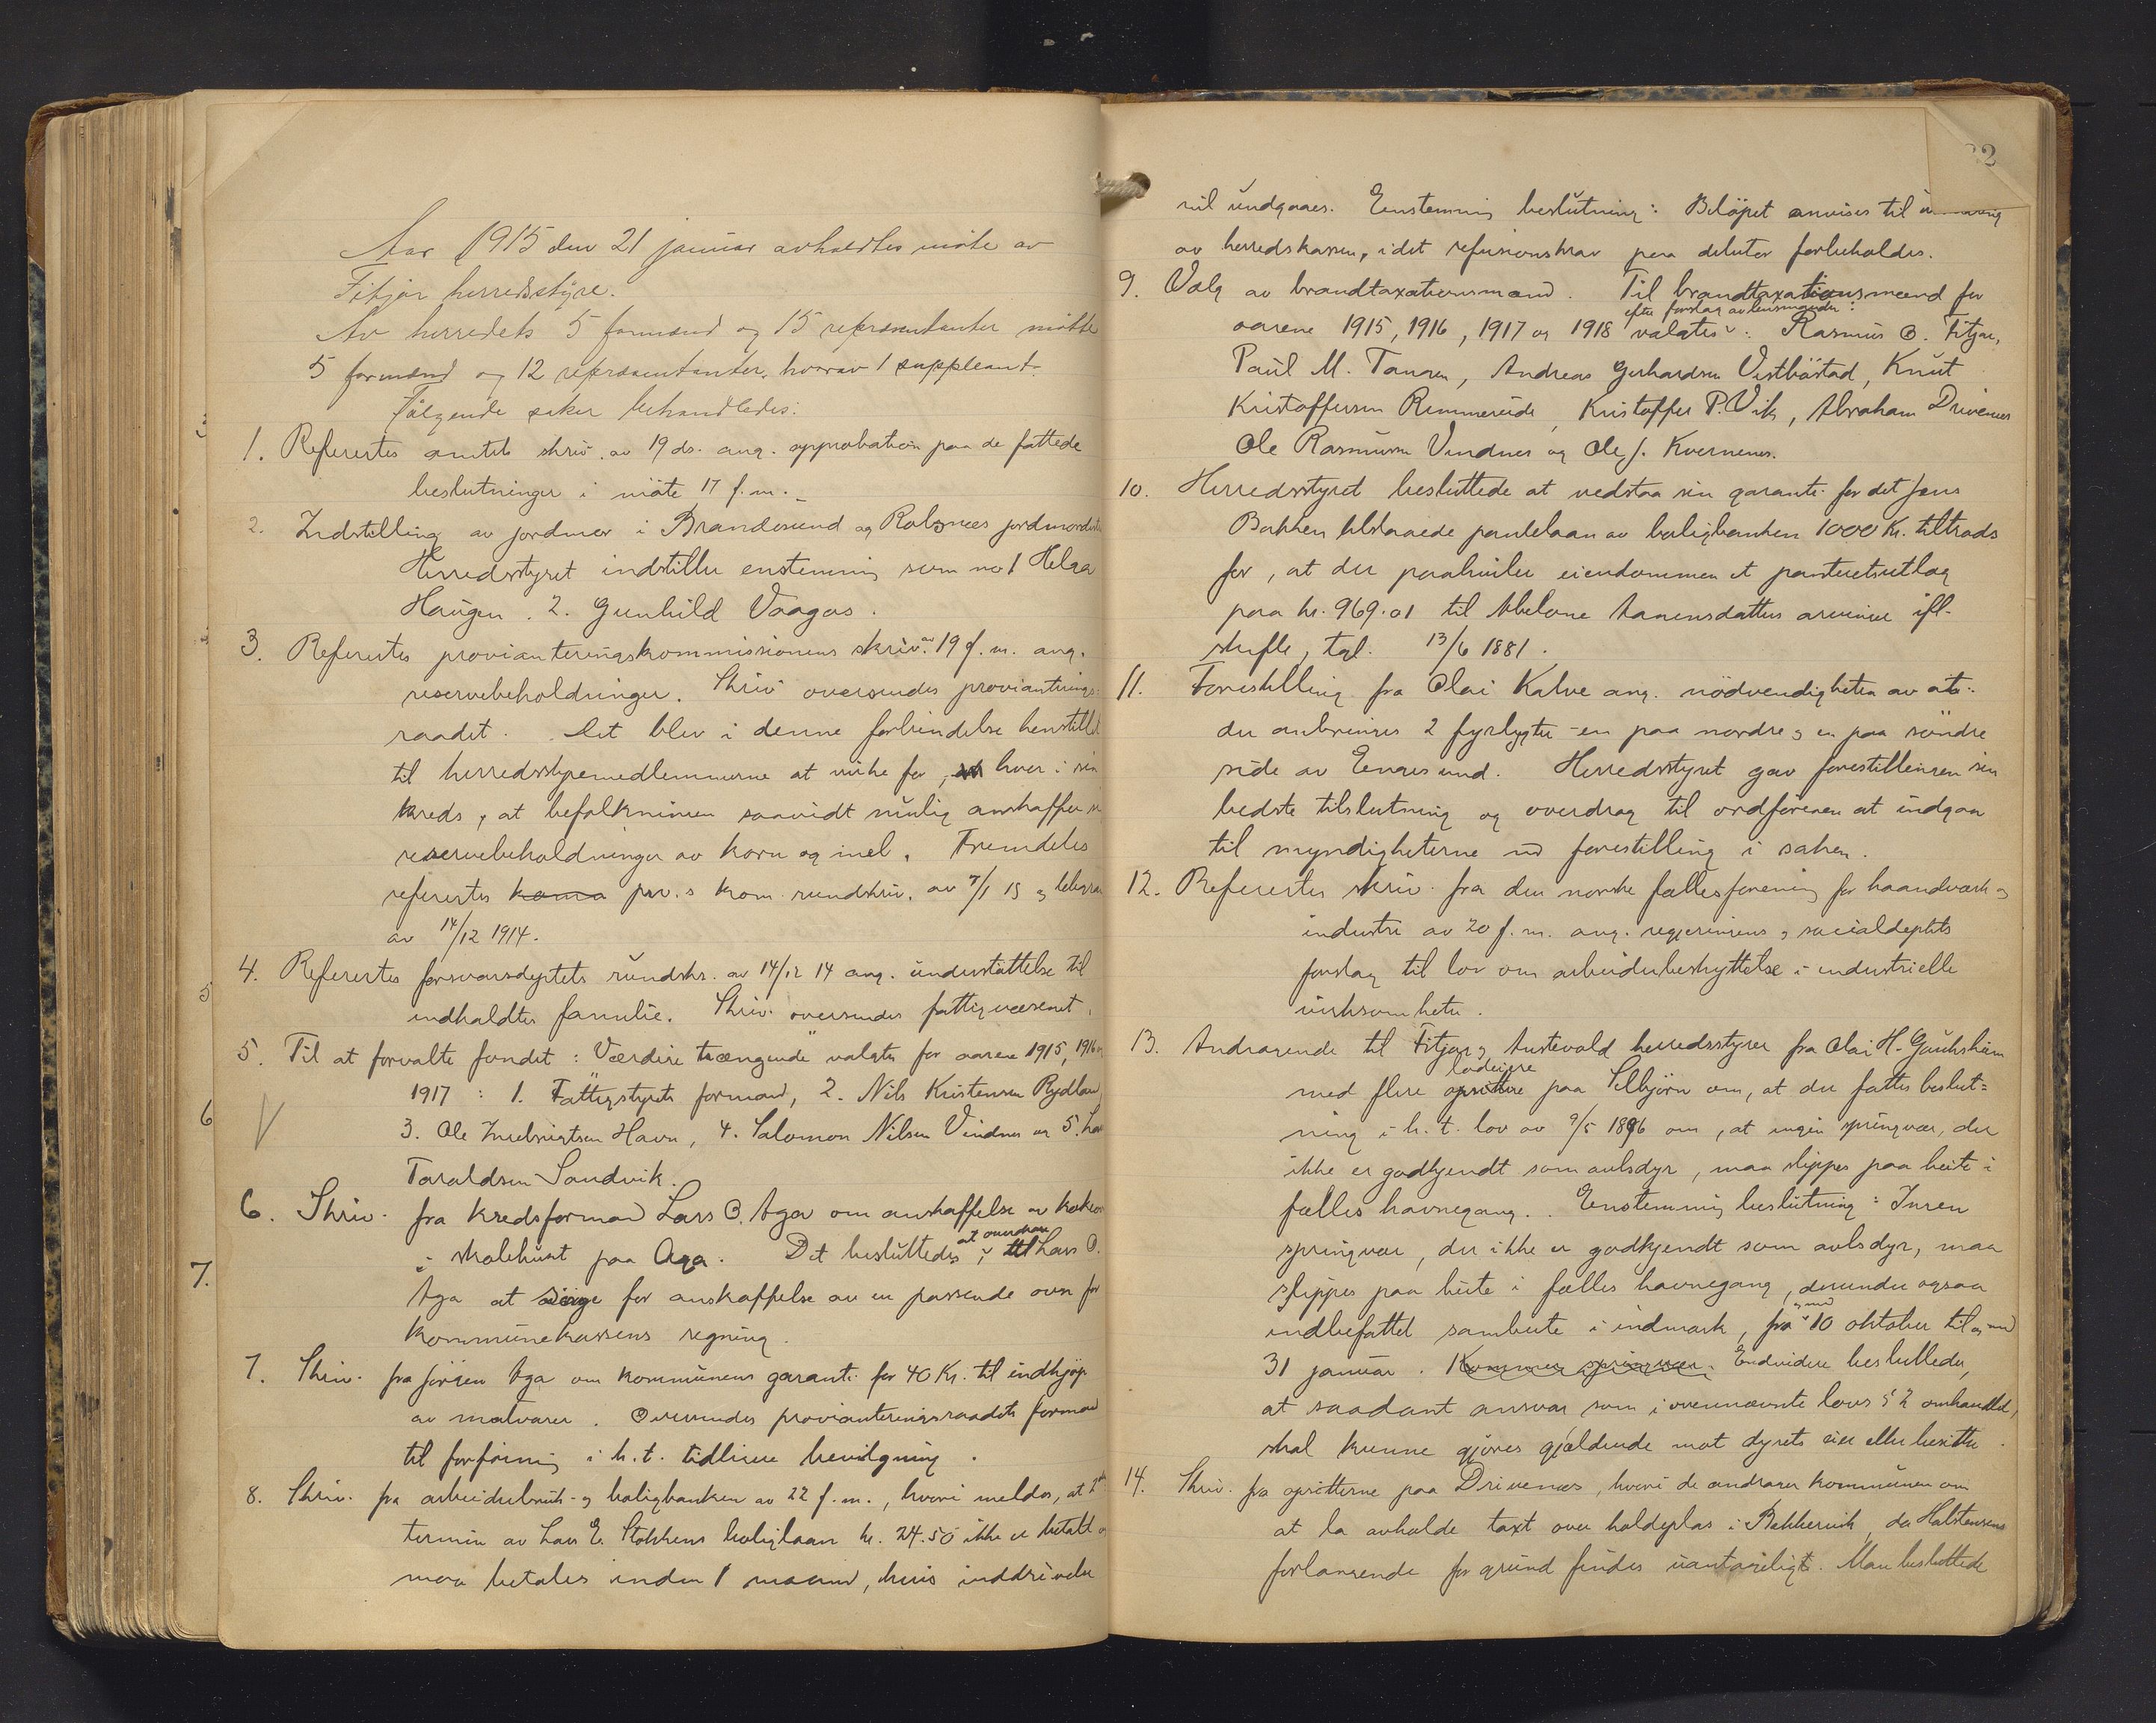 Aar 1915 den 21 januar avholdtes møte av
Fitjar herredsstyre.
Av herredets 5 formænd og 15 repræsentanter møtte
5 formænd og 12 repræsentanter, hvorav 1 suppleant.
Følgende saker behandledes:
1. Referertes amtets skriv. av 19 ds. ang. approbation paa de fattede
beslutninger i møte 17 f.m.
2. Indstilling av jordmor i Brandasund og Rolsnes
Herredsstyret indstiller enstemmig som no 1 Helga
Haugen. 2. Gunhild Vaagas.
3. Referertes provianteringskommissionens skriv. av 19 f.m. ang.
reservebeholdninger. Skriv oversendes provianterings-
raadet. Det blev i denne forbindelse henstillet
til herredsstyremedlemmerne at virke for, hver i sin
kreds, at befolkningen saavidt mulig anskaffer
reservebeholdninger av korn og mel. Fremdeles
refertes prv.s kom. rundskriv. av 7/1 15 og
av 14/12 1914.
4. Referertes forsvarsdeptets rundskr. av 14/12 14 ang. understøttelse til
indkaldtes familie. Skriv. oversendes fattigvæsenet.
5. Til at forvalte fondet: Værdige trængende valgtes for aarene 1915, 1916 og
1917: 1. Fattigstyrets formand, 2. Nils Kristensen Rydland
3. Ole Ingebrigtsen Havn, 4. Salomon Nilsen Vindnes og 5.
Taraldsen Sandvik.
6. Skriv. fra kredsformand Lars O. Aga om anskaffelse av
i skolehuset paa Aga. Det besluttedes at overdrage Lars O.
Aga at sörge for anskaffelse av en passende ovn for
kommunekassens regning.
7. Skriv. fra Jörgen Aga om kommunens garanti for 40 Kr. til indkjøp
av matvarer. Oversendes provianteringsraadets formand
til forføining i h.t. tidligere bevilgning.
8. Skriv. fra arbeiderbruk- og boligbanken av 22 f.m., hvori meldes, at
termin av Lars E. Stokkens boliglaan kr. 24.50 ikke er betalt og
maa betales inden 1 maaned, hvis inddrivelse
6
7.
32
vil undgaaes. Enstemmig beslutning: Beløpet anvises til
av herredskassen, idet refusionskrav paa debitor forbeholdes.
9. Valg av brandtaxationsmænd. Til brandtaxationsmænd for
efter forslag av lensmanden:
aarene 1915, 1916, 1917 og 1918 valgtes: Rasmus O. Fitjar,
Paul M. Tangen, Andreas Gerhardsen Vestbøstad, Knut
Kristoffersen Rimmereide, Kristoffer P. Vik, Abraham Drivenes
Ole Rasmussen Vindnes og Ole J. Kvernenes.
10. Herredsstyret besluttede at vedstaa sin garanti for det Jens
Bakken tilstaaede pantelaan av boligbanken 1000 Kr. tiltrods
for, at der paahviler eiendommen et panteretsutlæg
paa kr. 969.01 til Abelone Aanensdatters arvinger ifl.
skifte, tgl. 13/6 1881.
11. Forestilling fra Olai Kalve ang. nödvendigheten av at
der anbringes 2 fyrlygter - en paa nordre og en paa söndre
side av Engesund. Herredsstyret gav forestillingen sin
bedste tilslutning og overdrog til ordföreren at indgaa
til myndigheterne med forestilling i saken.
12. Referertes skriv. fra den norske fællesforening for haandværk og
industri av 20 f.m. ang. regjeringens og socialdeptets
forslag til lov om arbeiderbeskyttelse i industrielle
virksomheter.
13. Andragende til Fitjar og Austevold herredsstyrer fra Olai H. Gauksheim
med flere opsittere paa Selbjörn om, at der fattes beslut=
ning i h.t. lov av 9/5 1896 om, at ingen springvær, der
ikke er godkjendt som avlsdyr, maa slippes paa beite i
fælles havnegang. Enstemmig beslutning: Ingen
springvær, der ikke er godkjendt som avlsdyr, maa
slippes paa beite i fælles havnegang, derunder ogsaa
indbefattet sambeite i indmark, fra og med 10 oktober til og med
31 januar. Kommer springvær. Endvidere besluttedes,
at saadant ansvar som i ovennævnte lovs § 2 omhandlet,
skal kunne gjöres gjældende mot dyrets eier eller besitter.
14. Skriv. fra opsitterne paa Drivenes, hvori de andrager kommunen om
at la avholde taxt over holdeplas i Bekkervik, da Halstensens
forlangende for grund findes uantageligt. Man besluttede